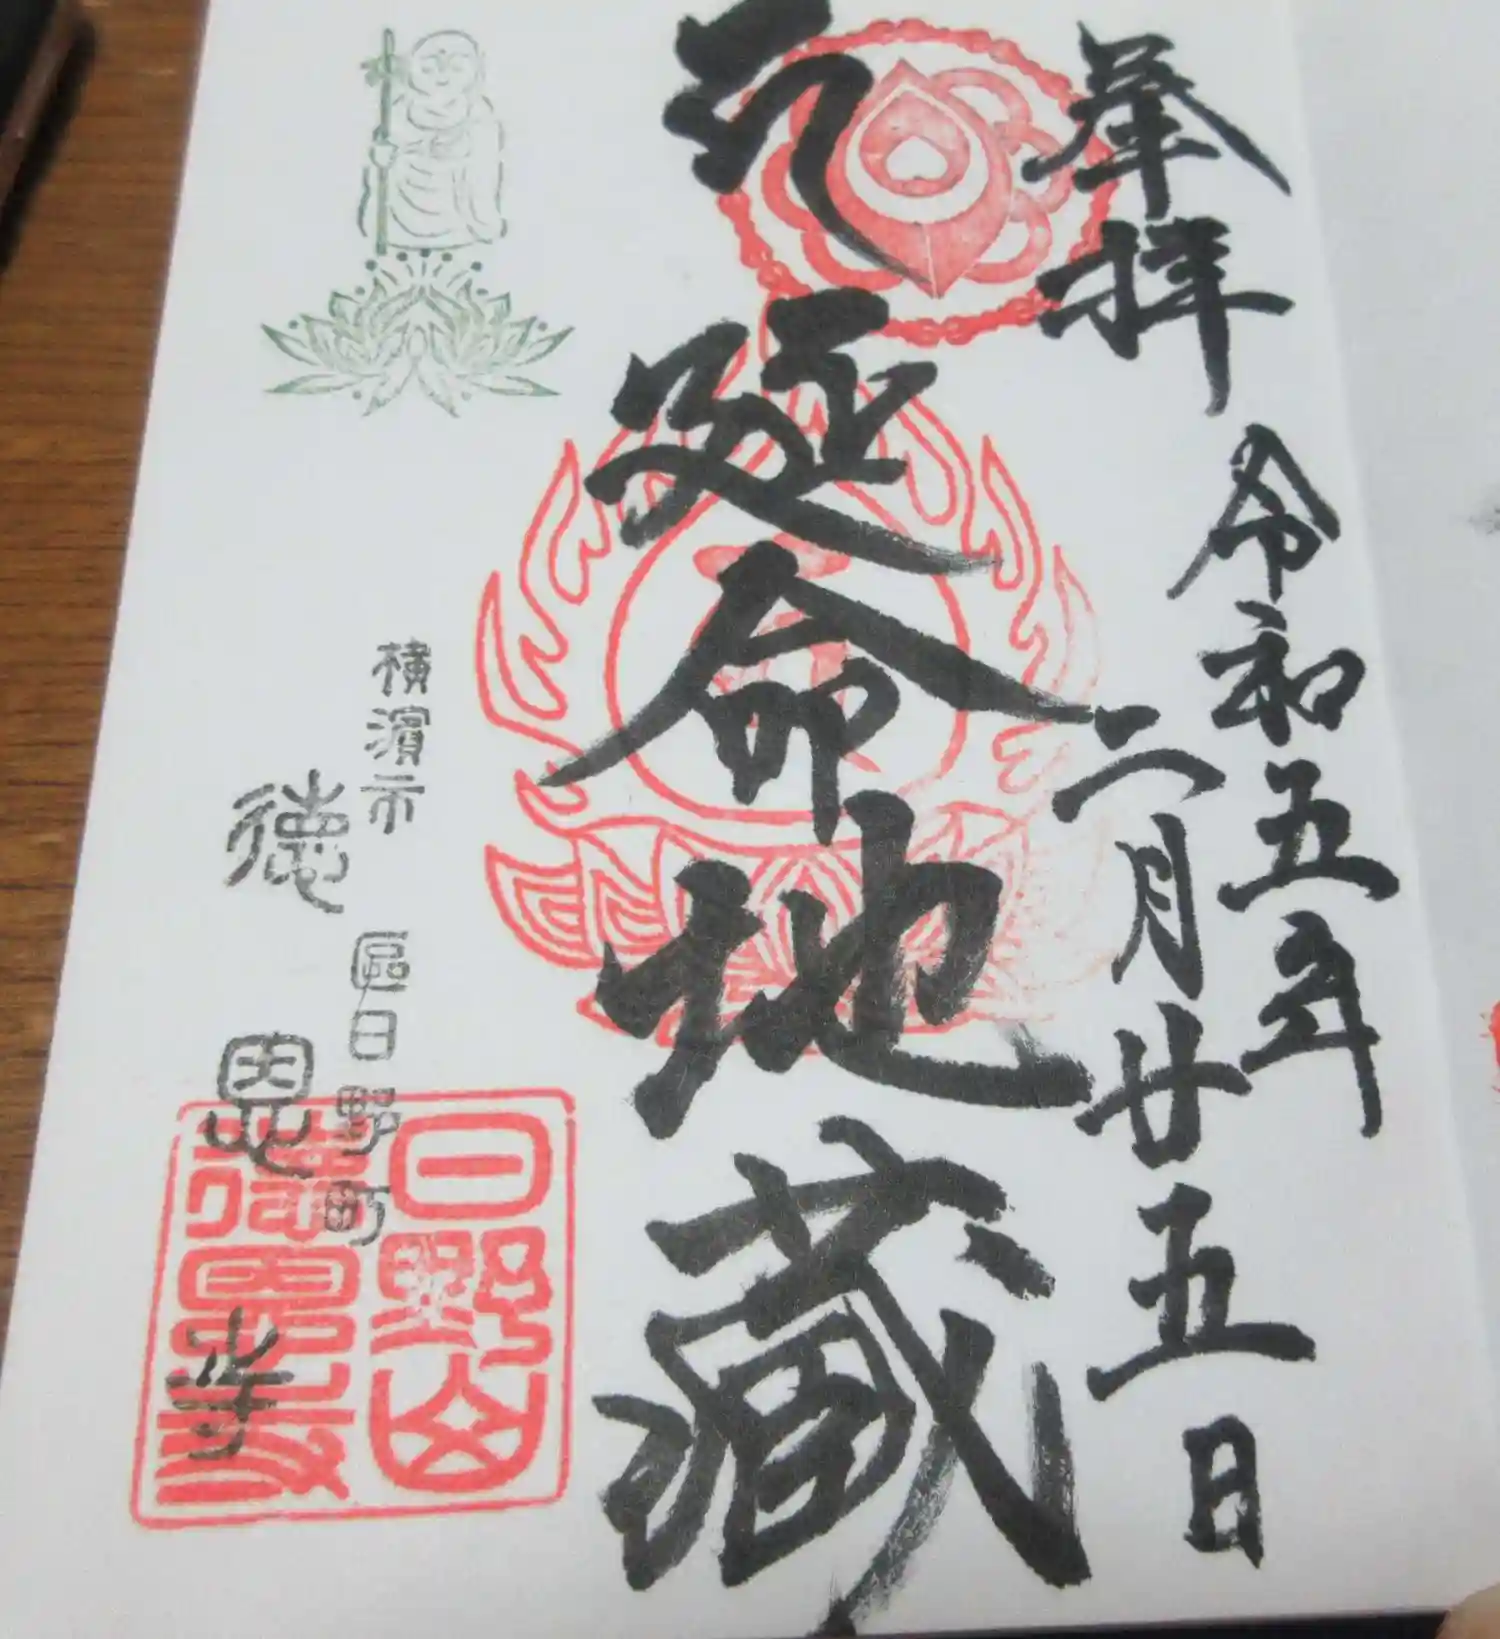 奉拝
令和五年
二月廿五日
延命地蔵
横濱市
區日野町
徳恩寺
日野山